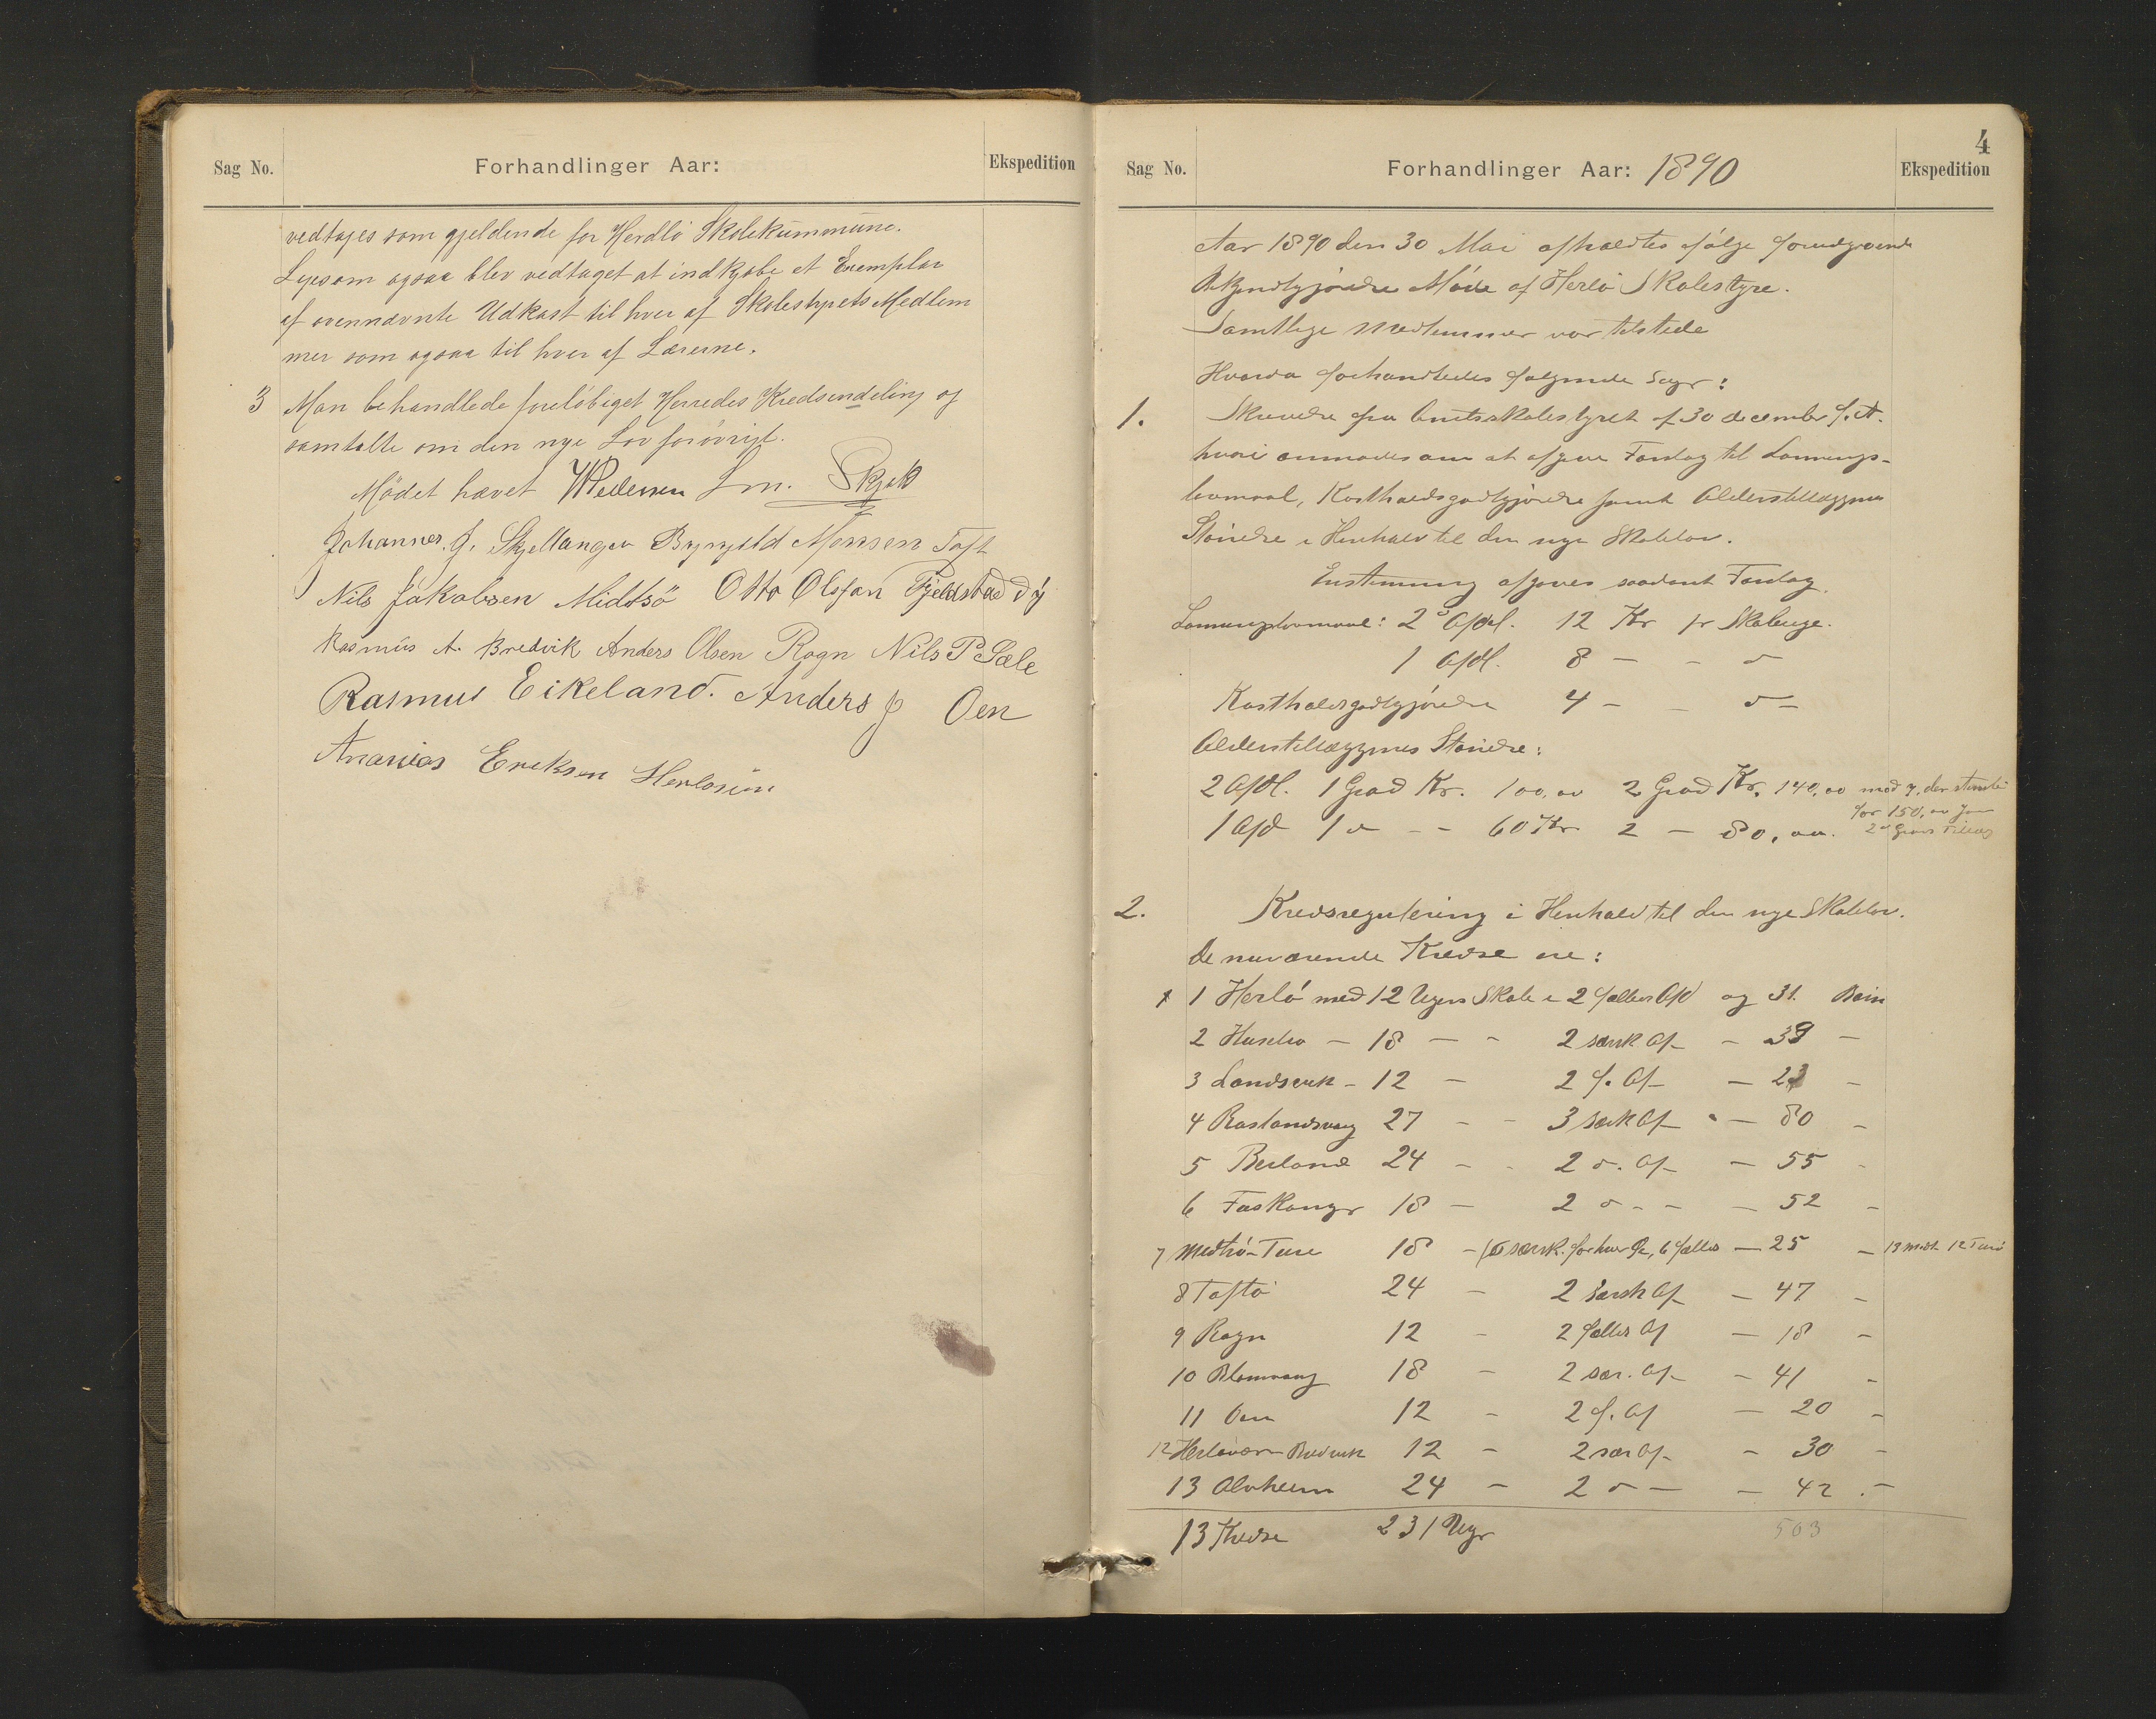 Sag No. Forhandlinger Aar: Ekspedition
vedtages som gjeldende for Herdlö Skolekummune.
Ligesom ogsaa blev vedtaget at indkjöbe et Exemplar
af ovennævnte Udkast til hver af Skolestyrets Medlem
mer som ogsaa til hver af Lærerne.
3 Man behandlede foreløbiget Herredes Kredsindeling og
samtalte om den nye Lov forövrigt.
Mödet hævet WPedersen Skjak
Johannes. J. Skjellanger Brynjeld Monsen Toft
Nils Jakobsen Midtsö Otto Olsjan Fjeldstad
Rasmus A. Bredvik Anders Olsen Rogn Nils P Sæle
Rasmus Eikeland. Anders J Oen
Ananias Eriksen Herlosün
4
Sag No. Forhandlinger Aar: 1890 Ekspedition
Aar 1890 den 30 Mai afholdtes ifölge forudgaaende
Bekjendtgjörelse Möde af Herlö Skolestyre.
Samtlige Medlemmer var tilstede
Hvorda forhandledes følgende Sager:
1. Skrivelse fra Amtsskolestyret af 30 december f. A.
hvori anmodes om at afgive Forslag til Lønnings-
lovmaal, Kostholdsgodtgjörelse samt Alderstillæggenes
Störrelse i Henhold til den nye Skolelov.
Enstemmig afgives saadant Forslag.
2 Afdl. 12 Kr pr Skoleuge.
1 Afdl. 8 — - "
Kostholdsgodtgjörelse 4 - - " -
Alderstillæggenes Störrelse:
2 Afdl. 1 Grad Kr. 100,00 2 Grad Kr. 140,00
for 150,00
1 Afd 1 " - - 60 Kr 2 — 80,00. 2den Grads Tillæg
2. Kredsregulering i Henhold til den nye Skolelov.
De nuværende Kredse ere:
1 Herlö med 12 Ugers Skole i 2 fælles Afd og 31. Børn
2 Husebø - 18 - - 2 særsk Af - 39 -
3 Landsvik - 12 - 2 f. Af - 23 -
4 Roslandsvaag 27 - - 3 særk Af - - 80 -
5 Berland 24 - - 2 " . Af - 55 -
6 Foskanger 18 - 2 " - - - 52 -
7 Midtsö-Ture 18 - særsk. for hver, 6 fælles - 25 - 13 Midt. 12 Turö
8 Toftö 24 - 2 Særsk Af - 47 -
9 Rogn 12 - 2 fælles Af - 18 -
10 Blomvaag 18 - 2 sær. Af - 41 -
11 Oen 12 - 2 f. Af - 20 -
12 Herløvær-Bredvik 12 - 2 sær Af - 30 -
13 Alvheim 24 - 2 " - - 42 . -
13 Kredse 231 Uger 503